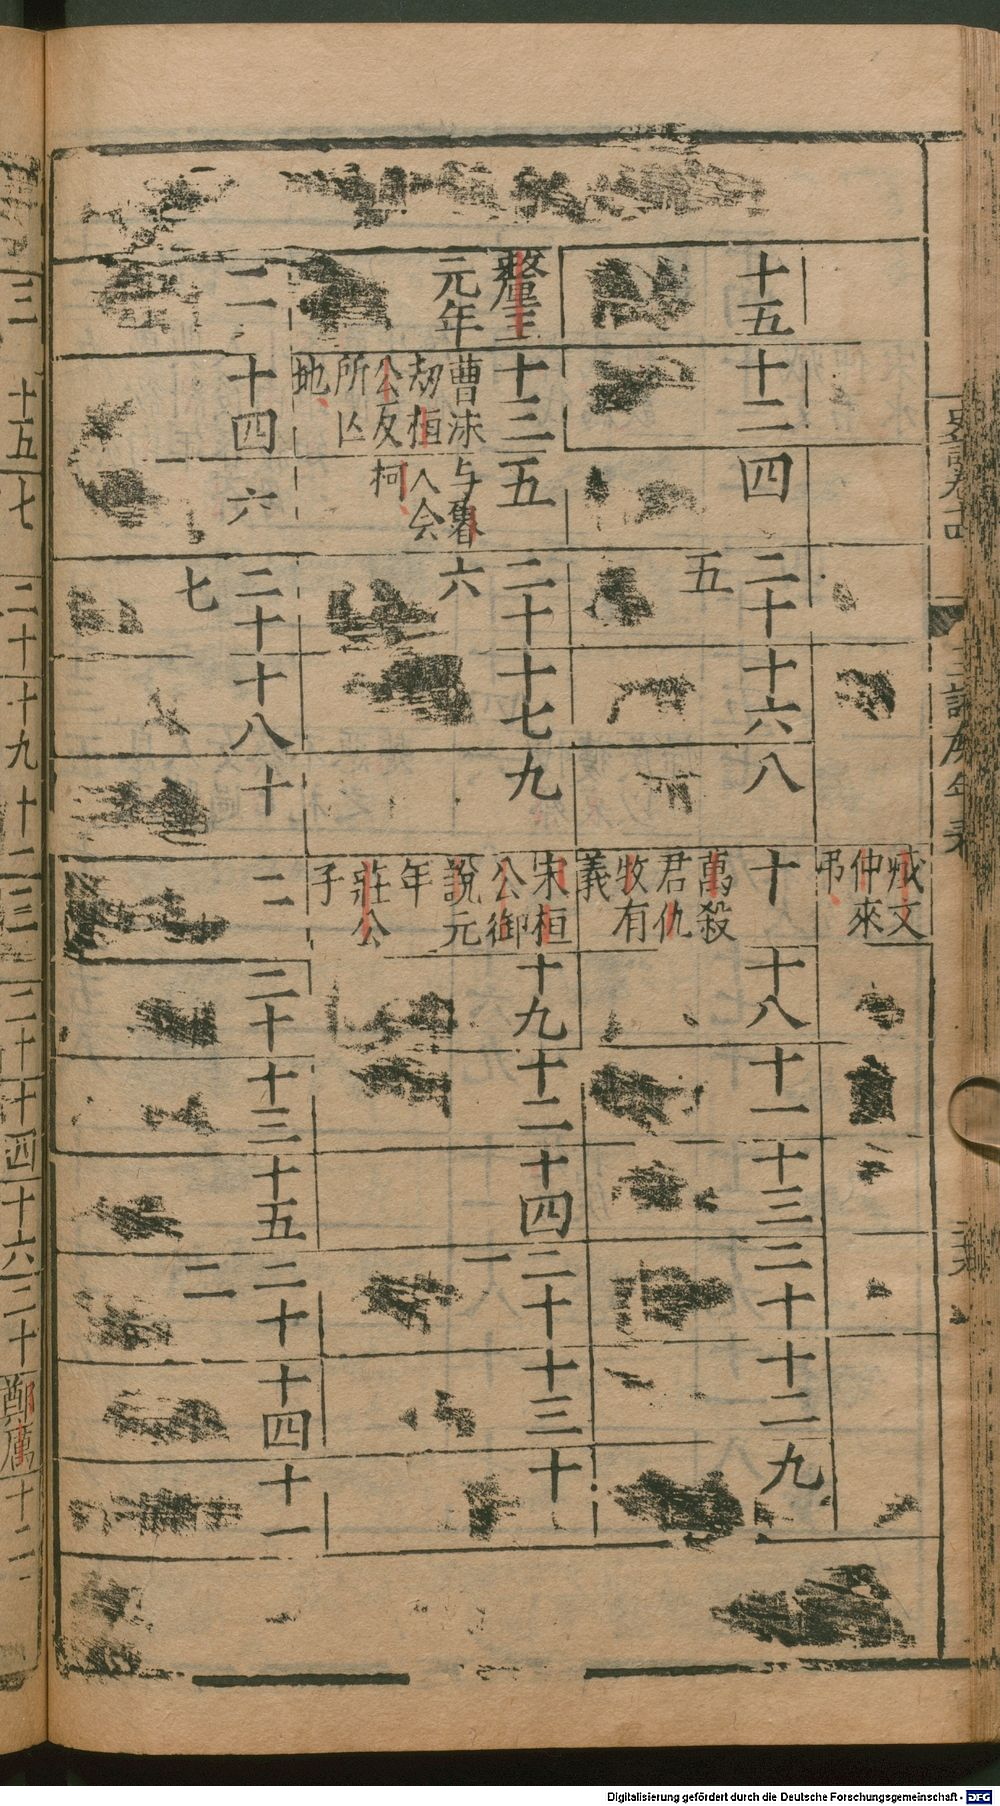 臧文
仲來
弔
十五
十二
四
二十
五
十六
八
十
萬殺
君仇
牧有
義
十八
十一
十三
二十
十二
九
釐王
元年
十三
曹沫
劫桓
公反
所亡
地
五
与魯
人会
柯
二十
六
十七
九
宋桓
公御
說元
年
莊公
子
十九
十二
十四
二十
一
十三
十
二
十四
六
二十
七
十八
十
二
二十
十三
十五
二十
二
十四
十一
三
十五
七
二十
十九
十二
三
二十
十四
十六
二十
鄭厲
十二
Digitalisierung gefördert durch die Deutsche Forschungsgemeinschaft - DFG